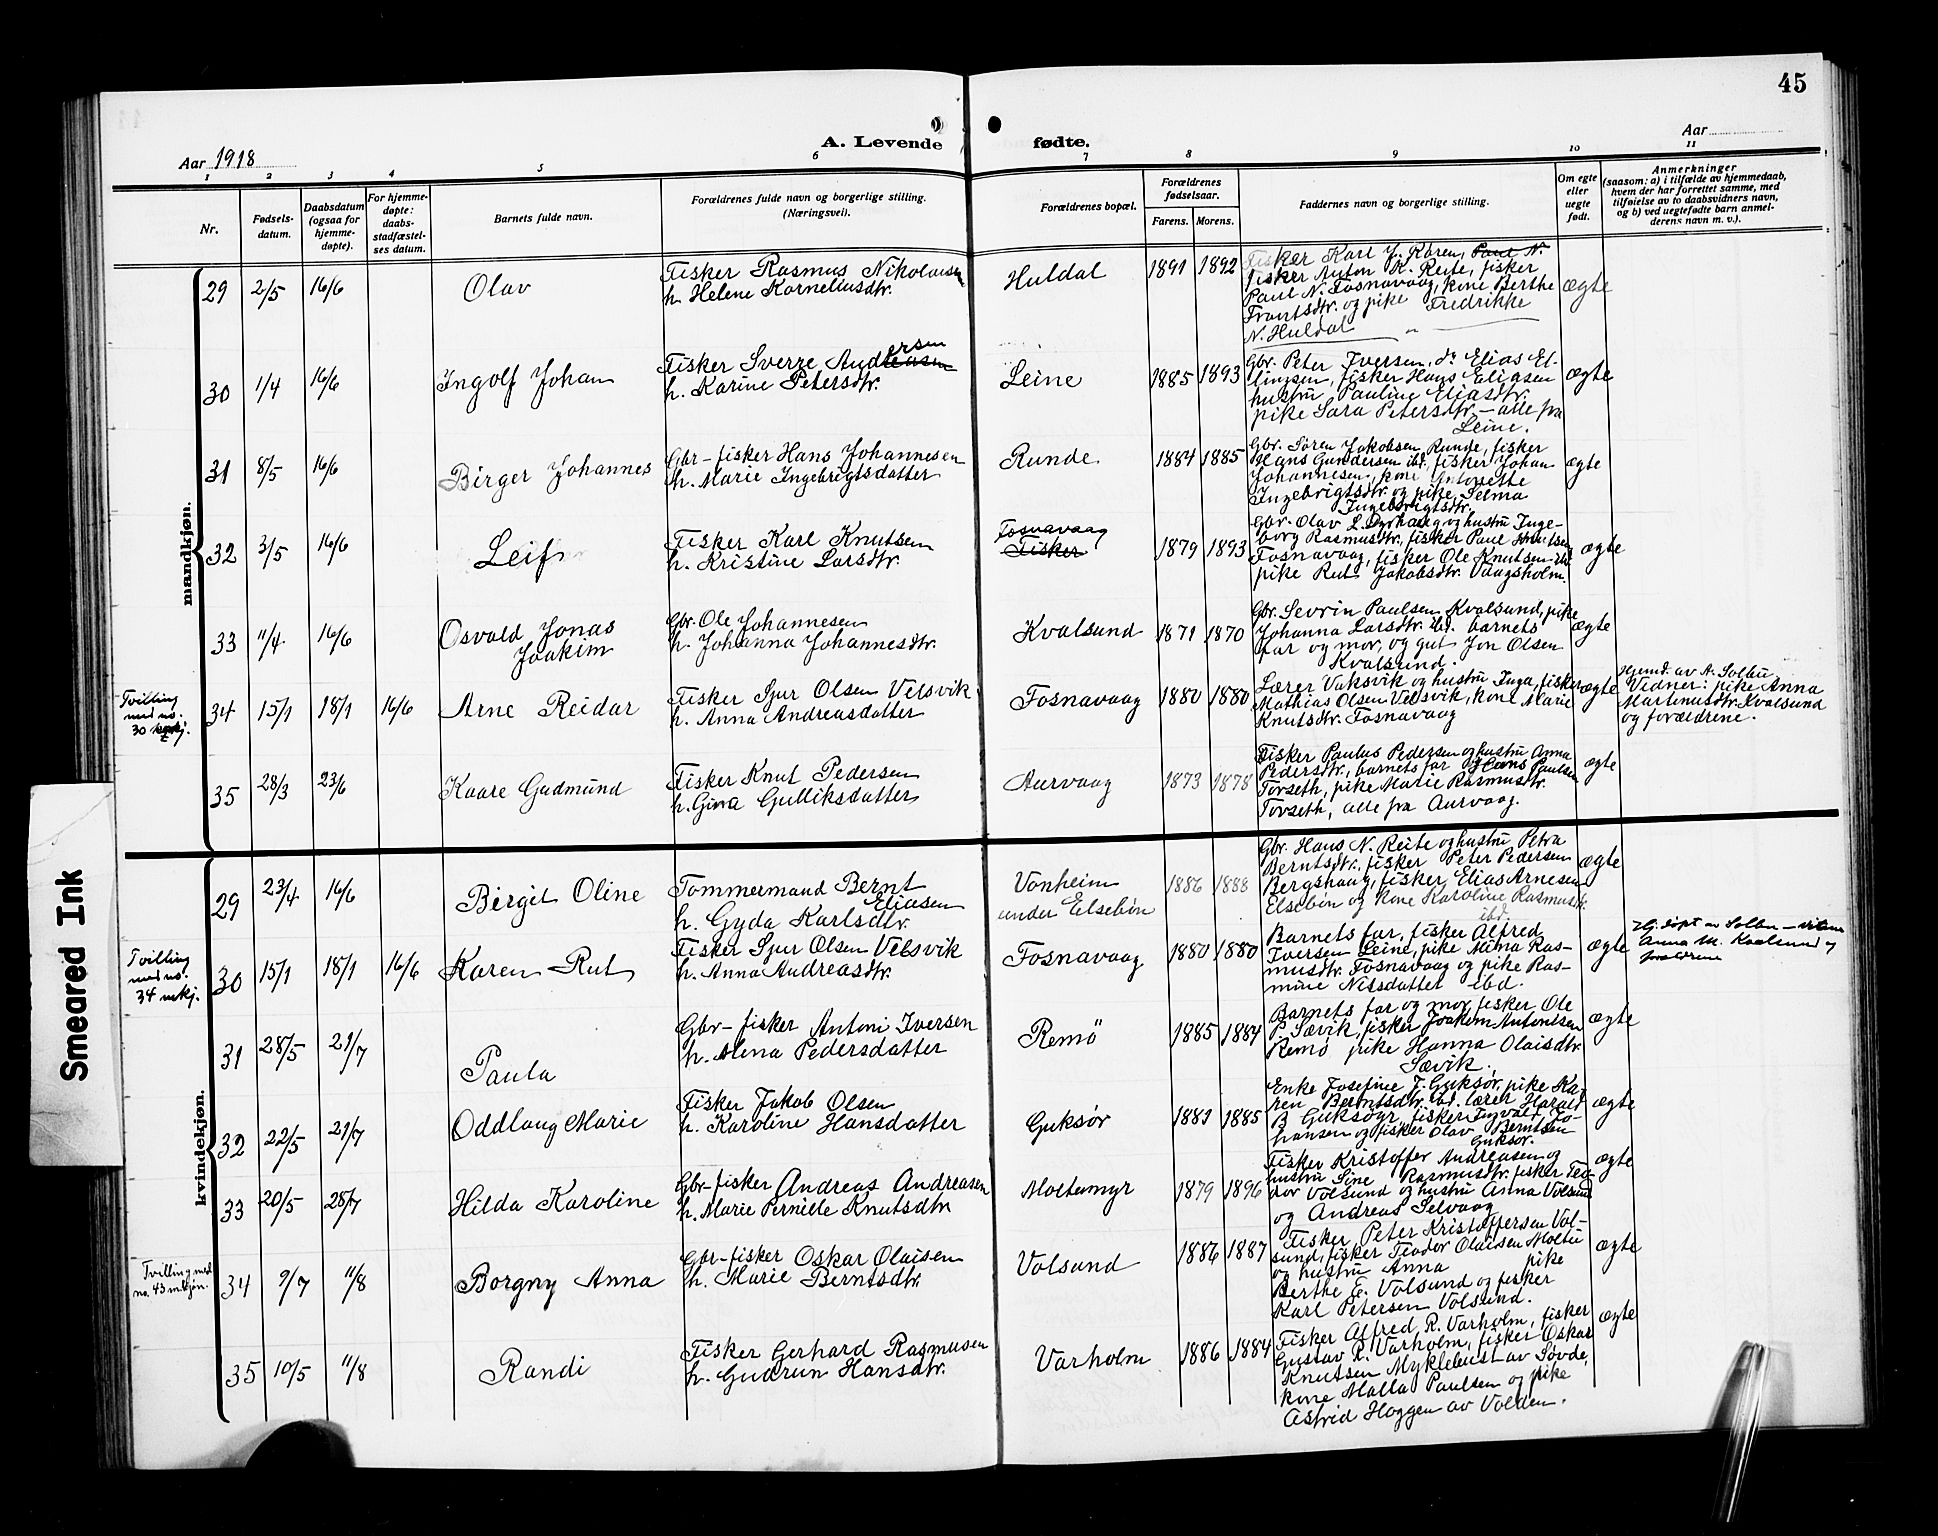 45
A. Levende fødte.
Aar 1918
Aar
1 2 3 4 5 6 7 8 9 10 11
Nr.
Fødsels-
datum.
Daabsdatum
(ogsaa for
hjemme-
døpte).
For hjemme-
døpte:
daabs-
stadfæstel-
ses datum.
Barnets fulde navn.
Forældrenes fulde navn og borgerlige stilling.
(Næringsvei).
Forældrenes bopæl.
Forældrenes
fødselsaar.
Farens. Morens.
Faddernes navn og borgerlige stilling.
Om egte
eller
uegte
født.
Anmerkninger
(saasom: a) i tilfælde av hjemmedaab,
hvem der har forrettet samme, med
tilføielse av to daabsvidners navn,
og b) ved uegtefødte barn anmel-
derens navn m. v.).
mandkjøn.
29 2/5 16/6 Olav
Fisker Rasmus Nikolaisen
h. Helene Korneliusdtr.
Huldal 1891 1892
Fisker Karl J. Kåren, Paul N.
fisker Anton K. Reite, fisker
Paul N. Fosnavaag, kone Berthe
Frantsdtr. og pike Fredrikke
N. Huldal
ægte
30 1/4 16/6 Ingolf Johan
Fisker Sverre Andersen
h. Karine Petersdtr.
Leine 1885 1893
Gbr. Peter Iversen, do Elias El-
lingsen, fisker Hans Eliasen
hustru Pauline Eliasdtr.
pike Sara Petersdtr. – alle fra
Leine.
ægte
31 8/5 16/6 Birger Johannes
Gbr-fisker Hans Johannesen
h. Marie Ingebrigtsdatter
Runde 1884 1885
Gbr. Søren Jakobsen Runde, fisker
Hans Gundersen ibd. fisker Johan
Johannesen, kone Antonette
Ingebrigtsdtr. og pike Selma
Ingebrigtsdtr.
ægte
32 3/5 16/6 Leif
Fisker Karl Knutsen
h. Kristine Larsdtr.
Fosnavaag
Fisker
1879 1893
Gbr. Olav L. Dyrhaug og hustru Inge-
borg Rasmusdtr., fisker Paul Knutsen
Fosnavaag, fisker Ole Knutsen ibd
pike Rut Jakobsdtr. Vaagsholm.
ægte
33 11/4 16/6 Osvald Jonas
Joakim
Gbr. Ole Johannesen
h. Johanna Johannesdtr.
Kvalsund 1871 1870
Gbr. Sevrin Paulsen Kvalsund, pike
Johanna Larsdtr. ibd. barnets
far og mor, og gut Jon Olsen
Kvalsund.
ægte
Tvilling
med no.
30 kvkj.
34 15/1 18/1 16/6 Arne Reidar
Fisker Sjur Olsen Velsvik
h. Anna Andreasdatter
Fosnavaag 1880 1880
Lærer Vaksvik og hustru Inga, fisker
Mathias Olsen Velsvik, kone Marie
Knutsdtr. Fosnavaag
ægte
Hjemd. av A. Solbu
Vidner: pike Anna
Martinusdtr. Kvalsund
og forældrene.
35 28/3 23/6 Kaare Gudmund
Fisker Knut Pedersen
h. Gina Gulliksdatter
Aurvaag 1873 1878
Fisker Paulus Pedersen og hustru Anna
Pedersdtr., barnets far og Hans Paulsen
Torseth, pike Marie Rasmusdtr.
Torseth, alle fra Aurvaag.
ægte
kvindekjøn.
29 23/4 16/6 Birgit Oline
Tømmermand Bernt
Eliasen
h. Gyda Karlsdtr.
Vonheim
under Elsebøn
1886 1888
Gbr. Hans N. Reite og hustru Petra
Berntsdtr., fisker Peter Pedersen
Bergshaug, fisker Elias Arnesen
Elsebøn og kone Karoline Rasmusdtr.
ibd.
ægte
Tvilling
med no.
34 mkj.
30 15/1 18/1 16/6 Karen Rut
Fisker Sjur Olsen Velsvik
h. Anna Andreasdtr.
Fosnavaag 1880 1880
Barnets far, fisker Alfred
Iversen Leine, pike Mina Ras-
musdtr. Fosnavaag og pike Ras-
mine Nilsdatter ibd.
ægte
Hj. døpt av Solbu –
Anna M. Kvalsund og
forældrene
31 28/5 21/7 Paula
Gbr-fisker Antoni Iversen
h. Alena Pedersdatter
Remö 1885 1884
Barnets far og mor, fisker Ole
P Sævik, fisker Joakim Antonisen
Remö, pike Hanna Olaisdtr.
Sævik.
ægte
32 22/5 21/7 Oddlaug Marie
Fisker Jakob Olsen
h. Karoline Hansdatter
Guksør 1883 1885
Enke Josefine J. Guksør, pike Ka-
ren Berntsdtr. ibd. lærer Harald
B Guksöyr, fisker Ingvald Jo-
hansen og fisker Olav Berntsen
Guksør.
ægte
33 20/5 28/7 Hilda Karoline
Gbr-fisker Andreas Andreasen
h. Marie Pernille Knutsdtr
Moltumyr 1879 1896
Fisker Kristoffer Andreasen og
hustru Sine Rasmusdtr. fisker Teo-
dor Volsund og hustru Anna Volsund
og Andreas Selvaag
ægte
Tvilling med
no. 43 m.kjøn.
34 9/7 11/8 Borgny Anna
Gbr-fisker Oskar Olaisen
h. Marie Berntsdtr.
Volsund 1886 1887
Fisker Peter Kristoffersen Vol-
sund, fisker Teodor Olaisen Moltu
og hustru Anna pike
Berthe E. Volsund og fisker
Karl Petersen Volsund.
ægte
35 10/5 11/8 Randi
Fisker Gerhard Rasmusen
h. Gudrun Hansdtr.
Varholm 1886 1884
Fisker Alfred R. Varholm, fisker
Gustav R. Varholm, fisker Oskar
Knutsen Myklebust av Søvde,
kone Malla Paulsen og pike
Astrid Haggen av Volden.
ægte
Smeared Ink